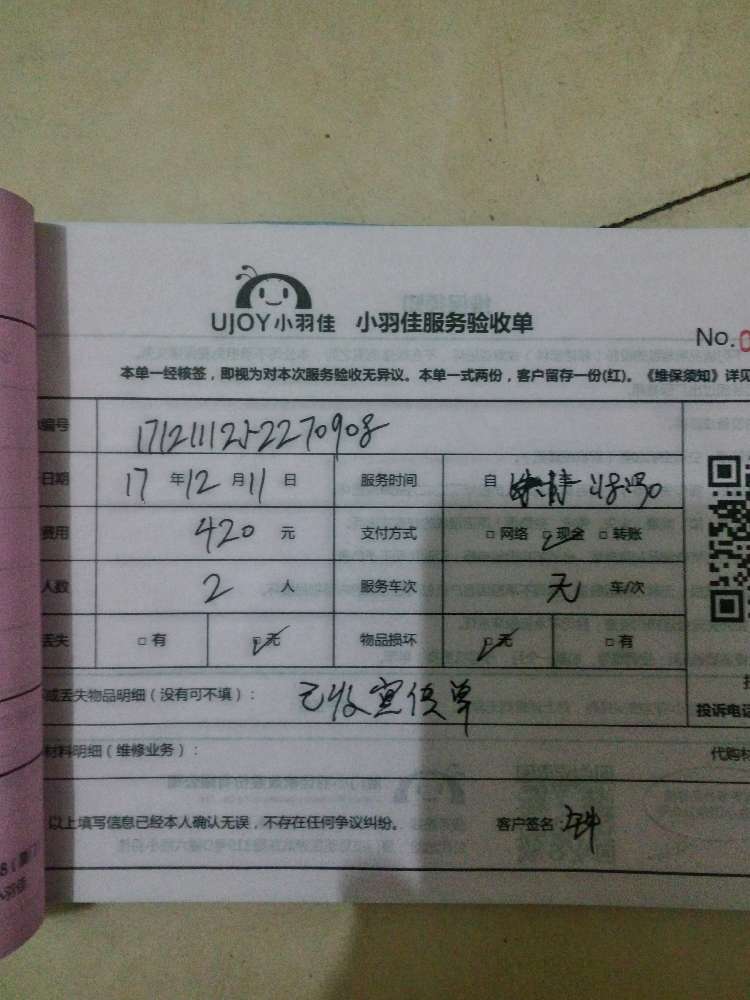 UJOY小羽佳 小羽佳服务验收单
No.0
本单一经核签，即视为对本次服务验收无异议。本单一式两份，客户留存一份(红)。《维保须知》详见
编号 17121112522270908
日期 17 年 12 月 11 日 服务时间 自
费用 420 元 支付方式 □ 网络 □ 现金 □ 转账
人数 2 人 服务车次 无 车/次
丢失 □ 有 □ 无 物品损坏 □ 无 □ 有
或丢失物品明细（没有可不填）： 已收宣传单
投诉电话
材料明细（维修业务）： 代购材
以上填写信息已经本人确认无误，不存在任何争议纠纷。 客户签名：